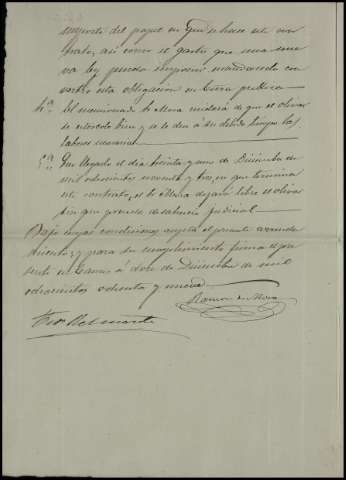 importe del papel en que se hace este con
trato, asi como el gasto que una nue
va ley pueda imponer mandando con
vertir esta obligacion en Escra publica
4ª. El mencionado de Mora cuidará de que el olivar
se cultive bien y se le den á su debido tiempo las
labores necesarias
5ª. Que llegado el dia treinta y uno de Diciembre de
mil ochocientos noventa y tres, en que termina
este contrato, el de Mora dejará libre el olivar
sin que proceda desahucio judicial
Bajo cuyas condiciones aceptan el presente arrenda
miento, y para su cumplimiento firman el pre
sente en á doce de Diciembre de mil
ochocientos ochenta y nueve
Ramon de Mora
Fro. Belmonte